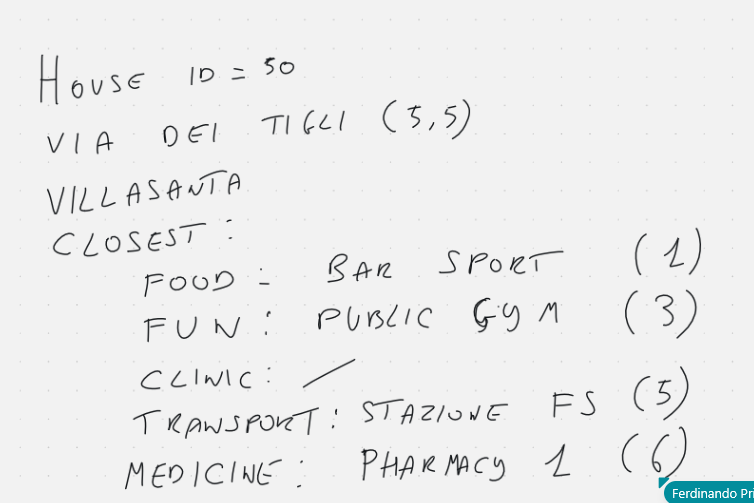 HOUSE ID = 50
VIA DEI TIGLI (5,5)
VILLASANTA
CLOSEST:
FOOD: BAR SPORT (1)
FUN: PUBLIC GYM (3)
CLINIC: /
TRANSPORT: STAZIONE FS (5)
MEDICINE: PHARMACY 1 (6)
Ferdinando Pri